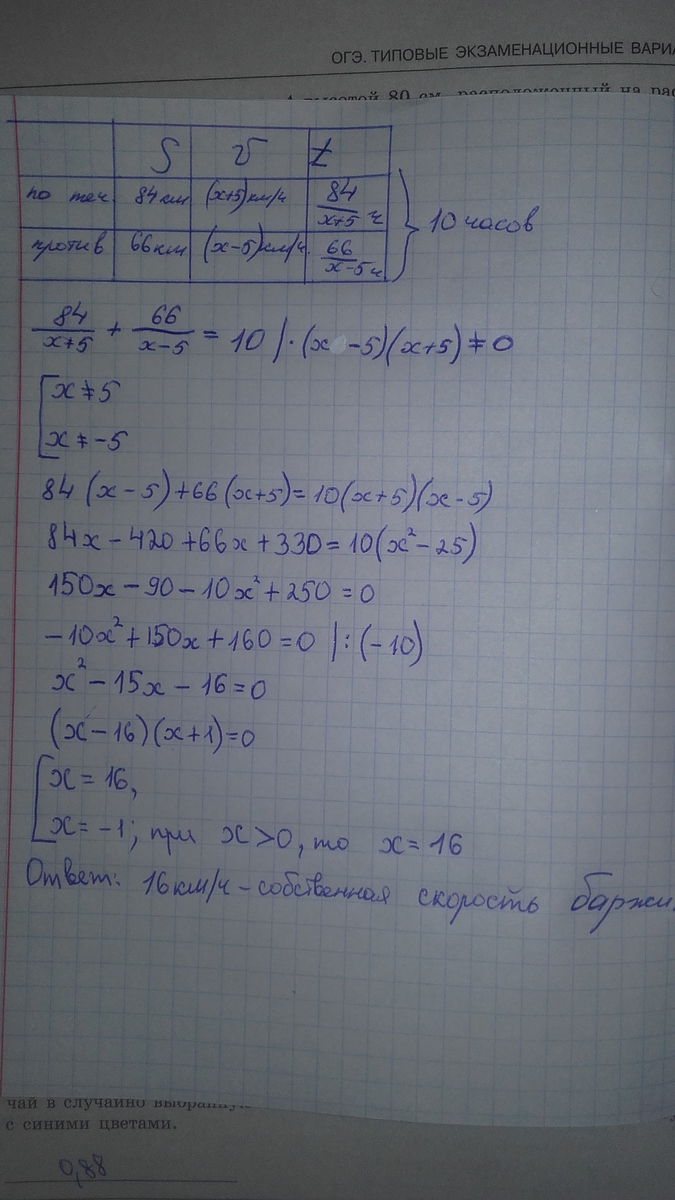 ОГЭ. ТИПОВЫЕ ЭКЗАМЕНАЦИОННЫЕ
S v t
по теч. 84 км (x+5) км/ч 84/(x+5) ч
против 66 км (x-5) км/ч. 66/(x-5) ч
10 часов
84/(x+5) + 66/(x-5) = 10 | · (x -5)(x+5) ≠ 0
[x ≠ 5
x ≠ -5
84 (x-5)+66(x+5)=10(x+5)(x-5)
84x-420+66x+330=10(x²-25)
150x-90-10x²+250=0
-10x²+150x+160=0 |:(-10)
x²-15x-16=0
(x-16)(x+1)=0
[x=16,
x=-1; при x>0, то x=16
Ответ: 16км/ч-собственная скорость баржи.
чай в случайно
с синими цветами.
0,88